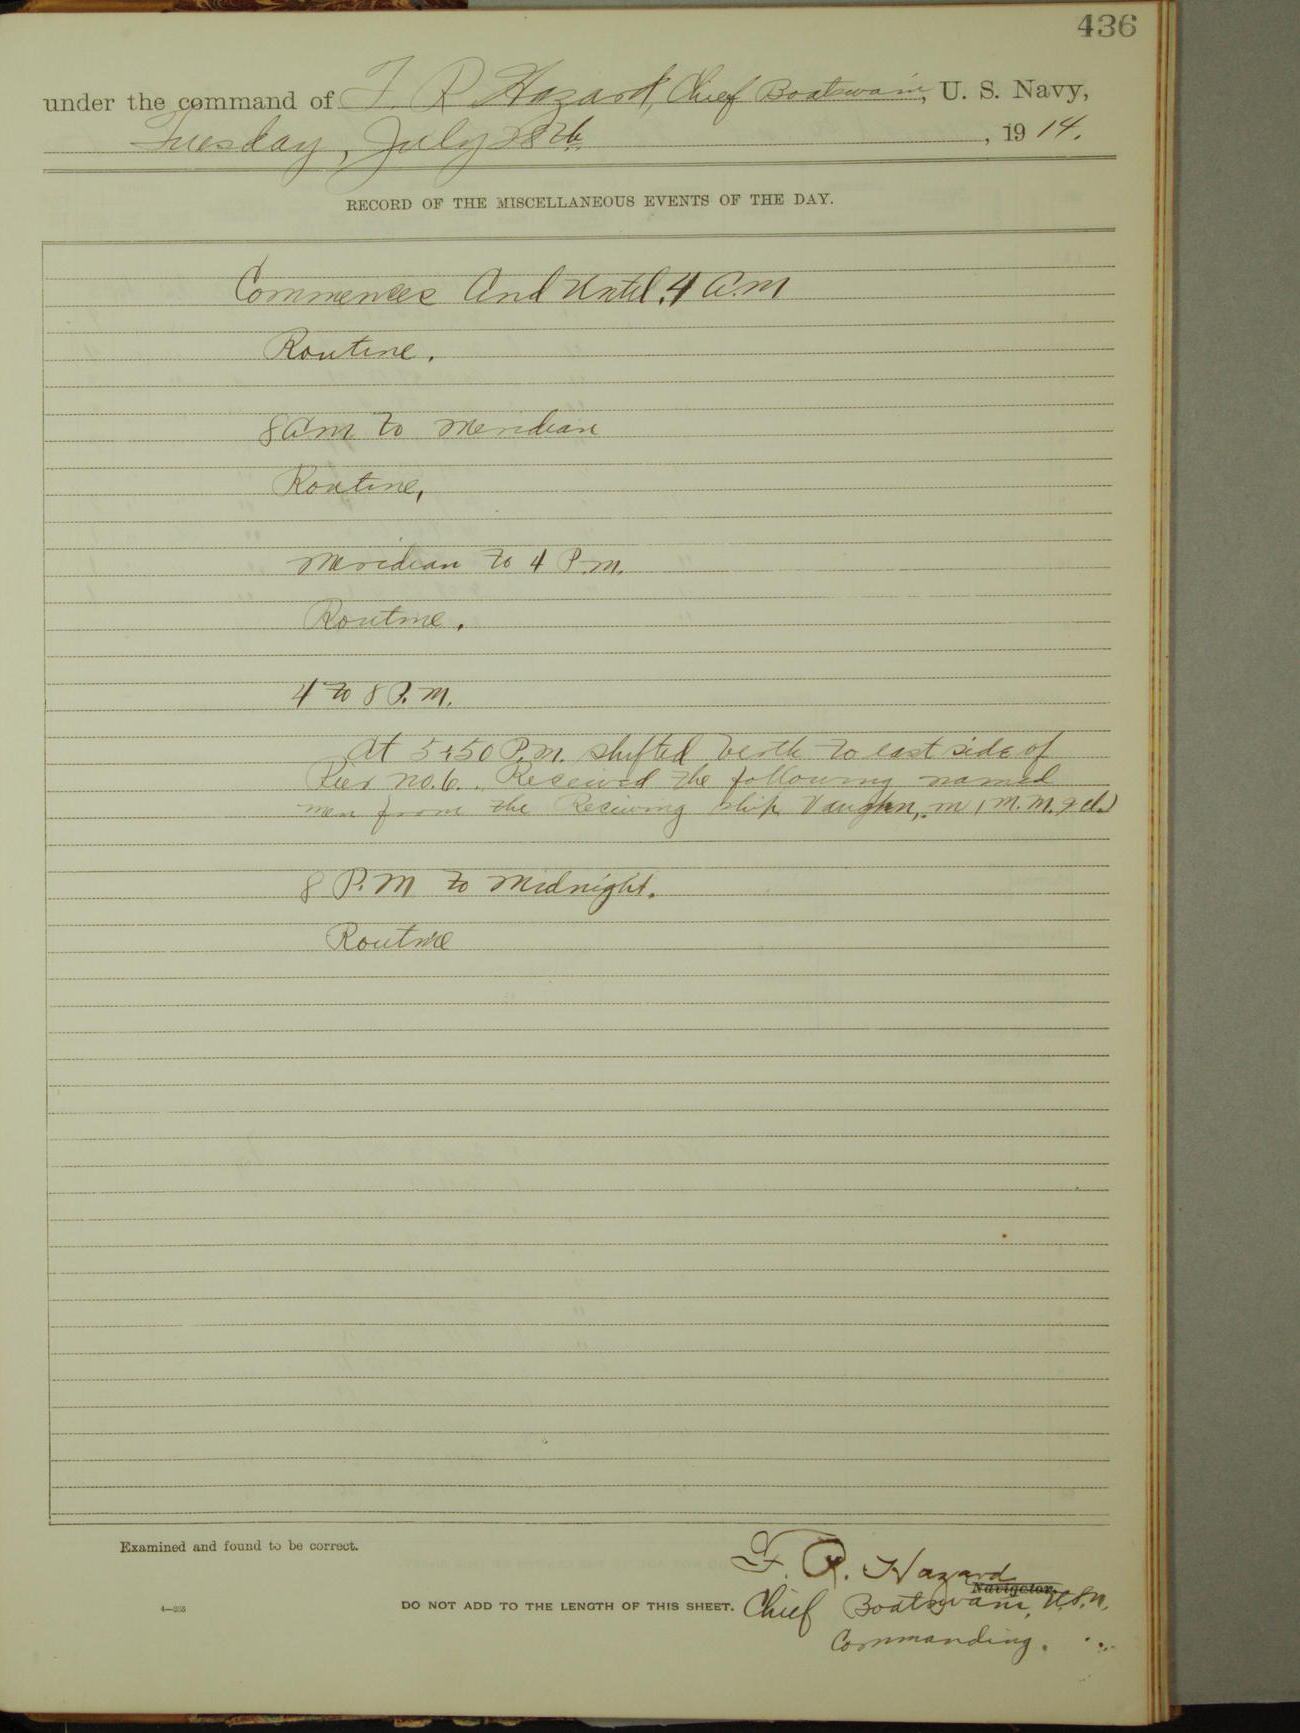 436
under the command of F. R. Hazard, Chief Boatswain, U. S. Navy,
Tuesday, July 28th, 1914.
RECORD OF THE MISCELLANEOUS EVENTS OF THE DAY.
Commences And Until 4 A.M
Routine.
8 am to Meridian
Routine,
Meridian to 4 P.M.
Routine.
4 to 8 P.M.
At 5:50 P.M. shifted berth to east side of
Pier No. 6. Received the following named
men from the Receiving ship Vaughn, M.
8 P.M to Midnight.
Routine
Examined and found to be correct.
F. R. Hazard
Navigator.
4—255
DO NOT ADD TO THE LENGTH OF THIS SHEET.
Chief Boatswain, U.S.N.
Commanding.